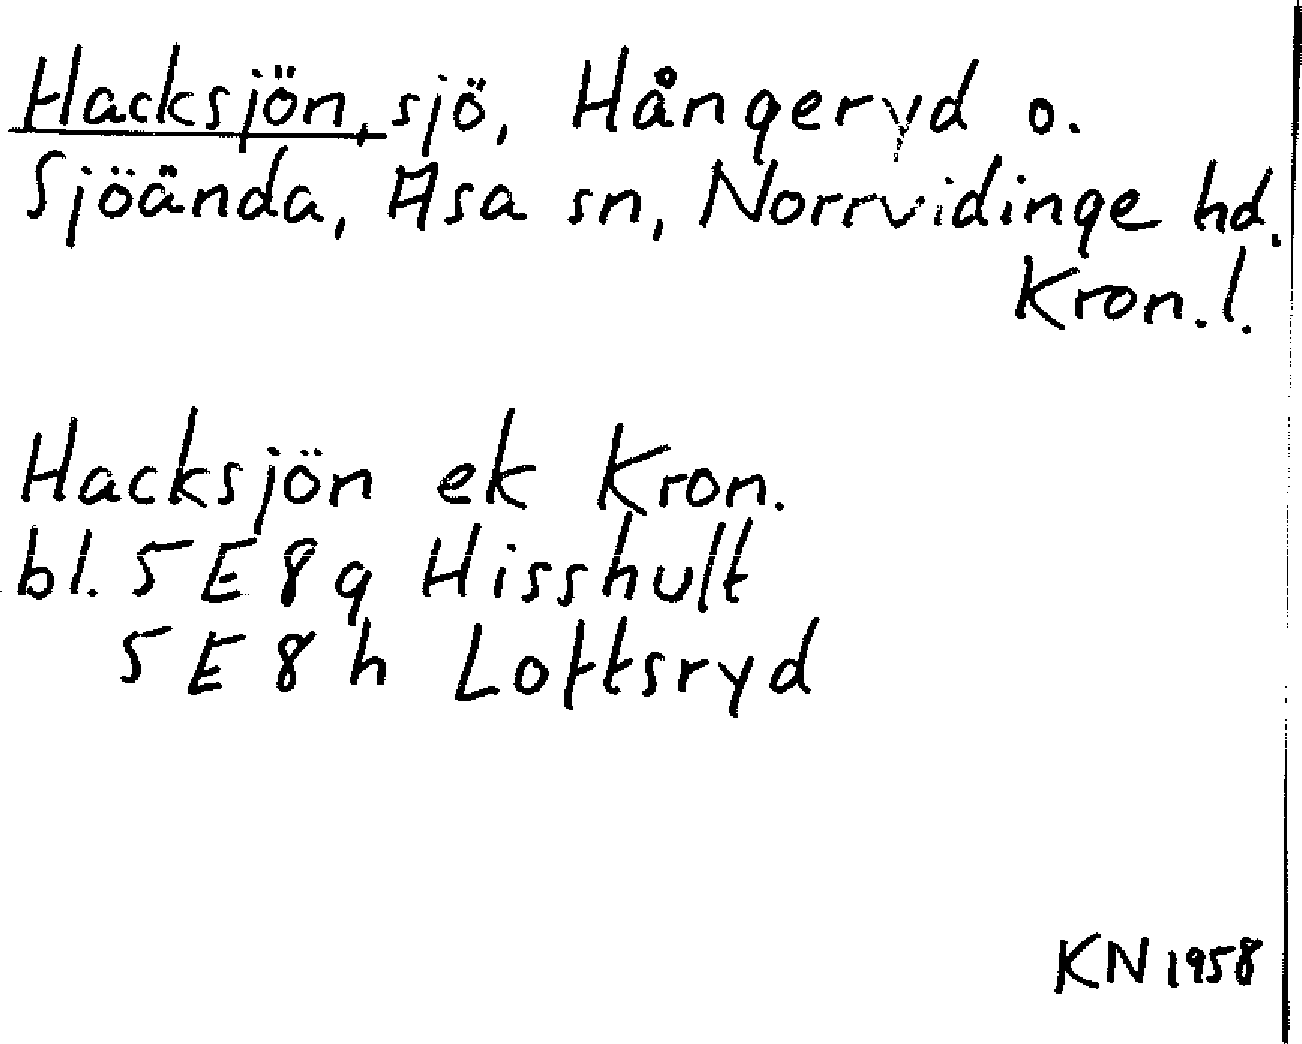 Hacksjön, sjö, Hångeryd o.
Sjöända, Asa sn, Norrvidinge hd.
Kron.l.
Hacksjön ek Kron.
bl. 5E8g Hisshult
5E8h Loftsryd
KN 1958